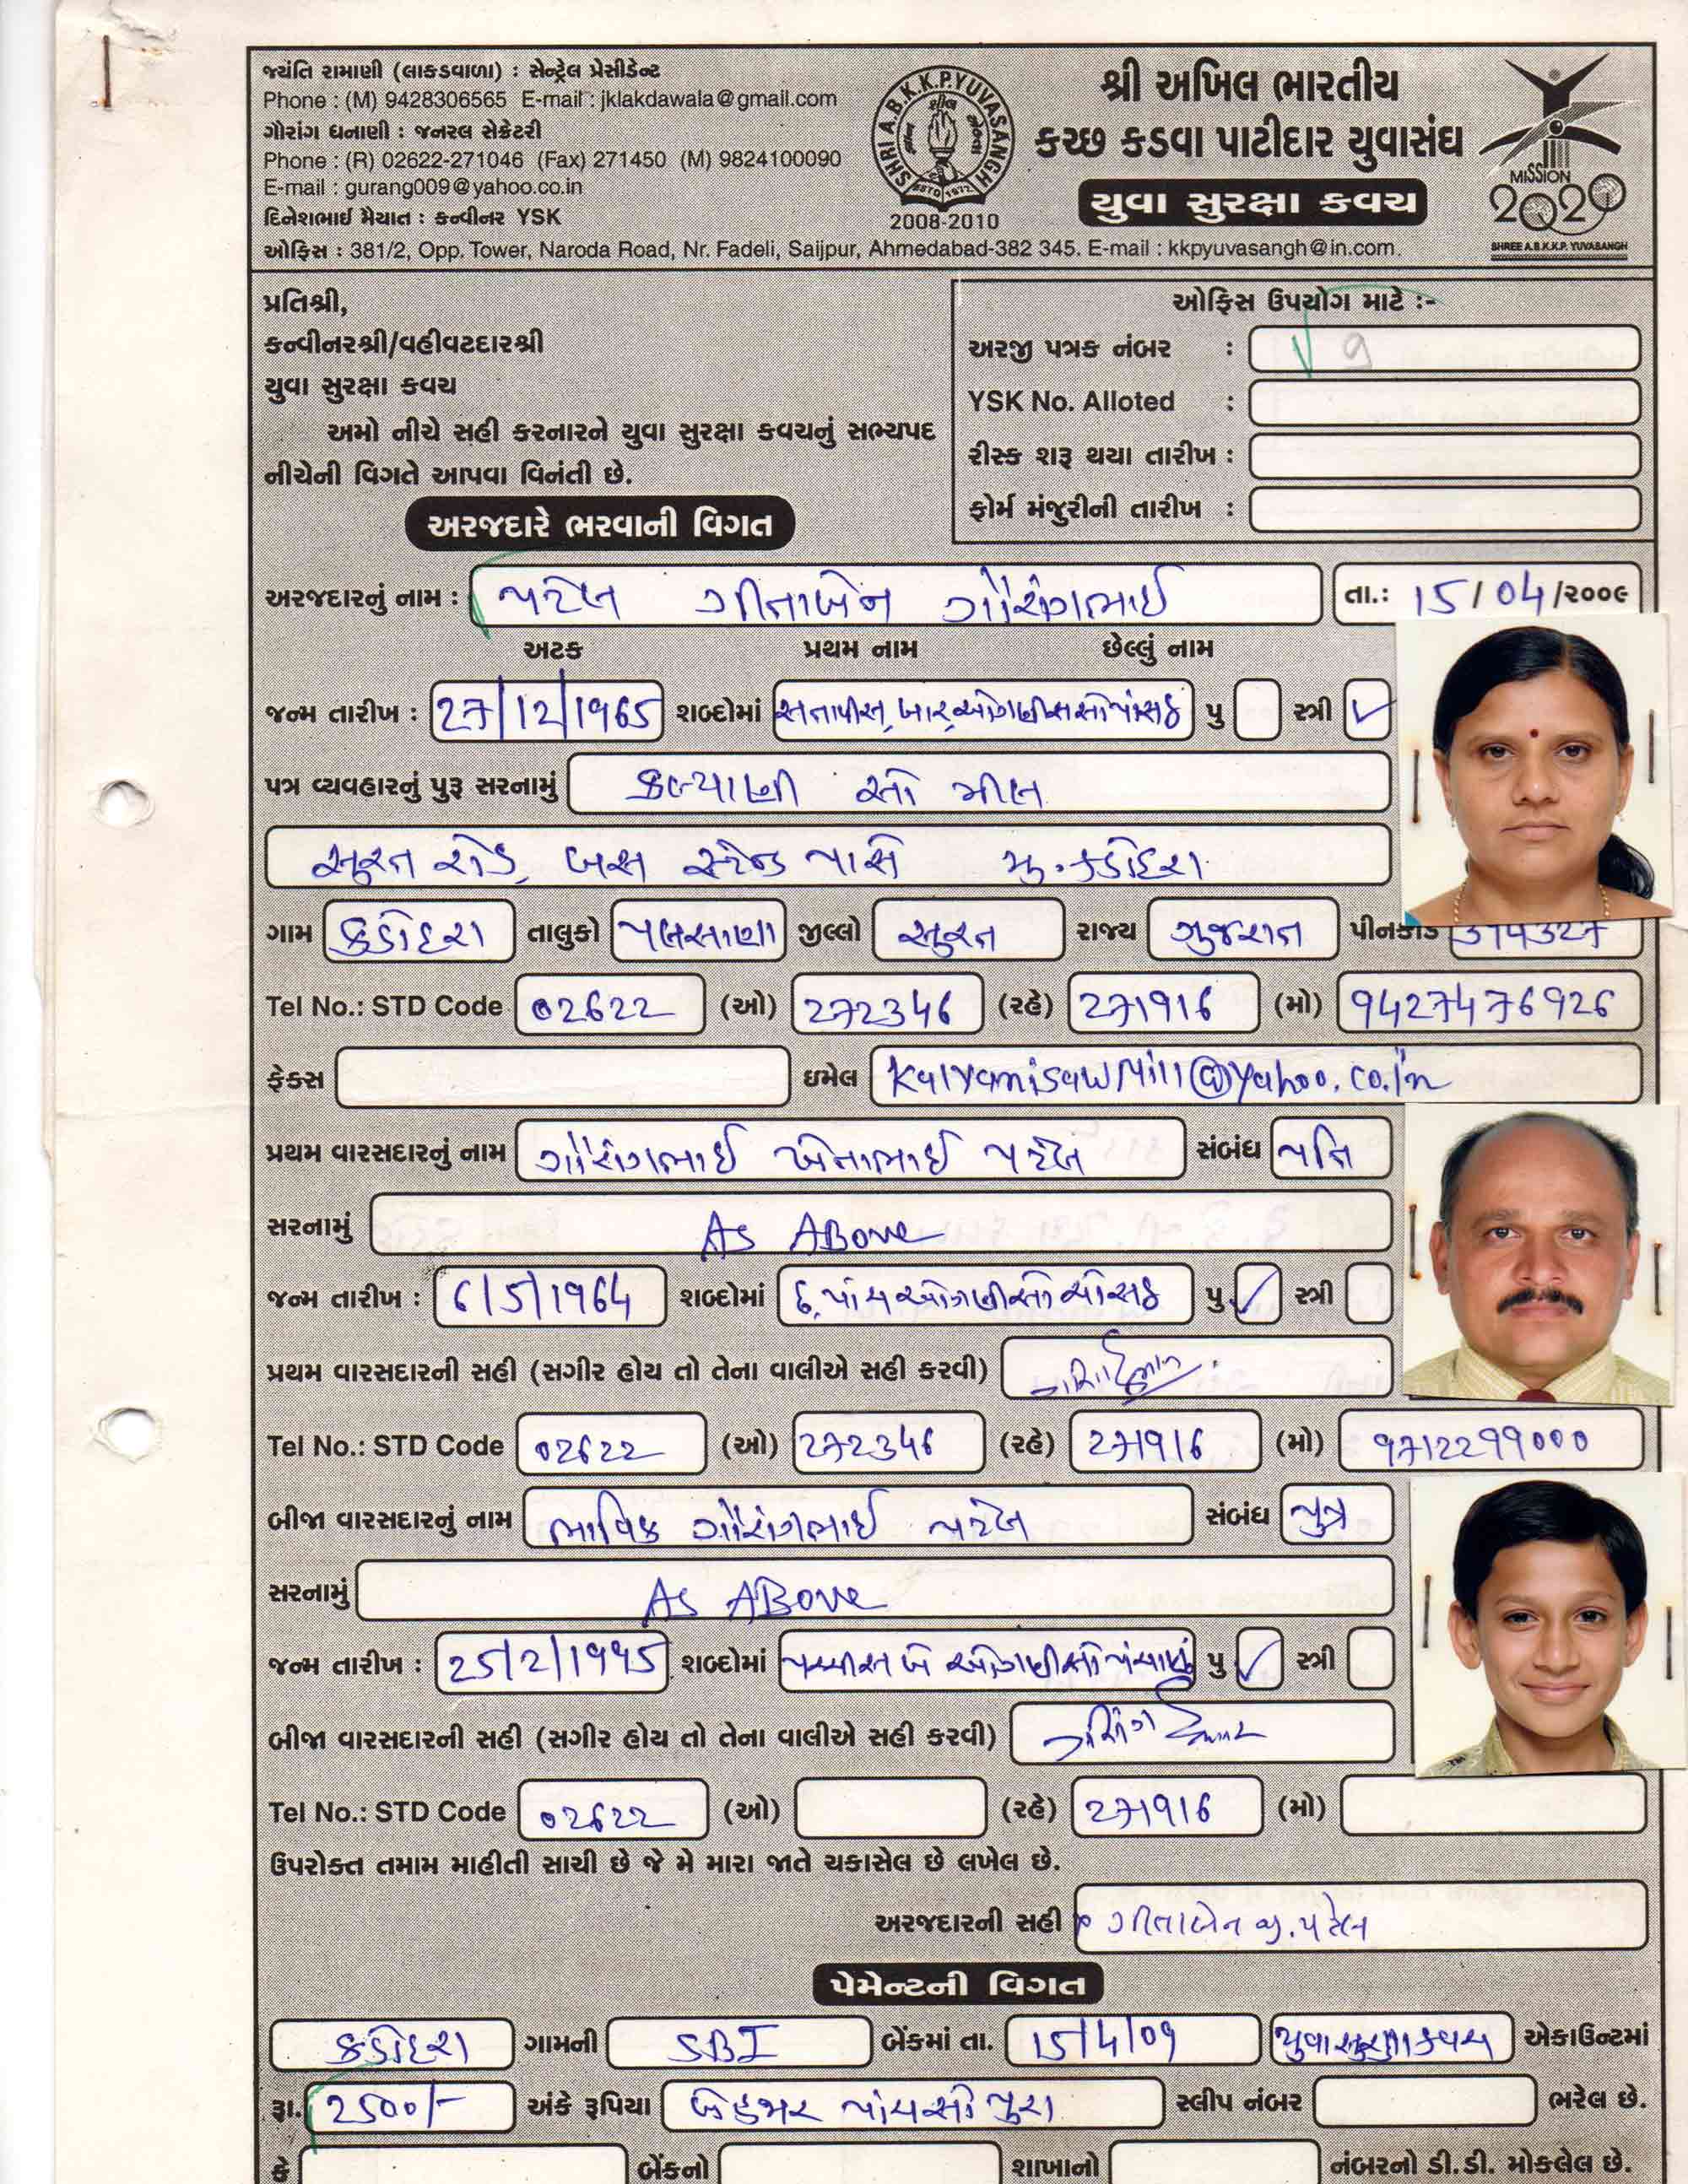 જ્યંતિ રામાણી (લાકડવાળા) : સેન્ટ્રેલ પ્રેસીડેન્ટ
Phone : (M) 9428306565 E-mail : jklakdawala@gmail.com
ગૌરાંગ ધનાણી : જનરલ સેક્રેટરી
Phone : (R) 02622-271046 (Fax) 271450 (M) 9824100090
E-mail : gurang009@yahoo.co.in
દિનેશભાઈ મૈયાત : કન્વીનર YSK
SHRI A.B.K.K.P. YUVASANGH
ESTD 1972
2008-2010
શ્રી અખિલ ભારતીય
કચ્છ કડવા પાટીદાર યુવાસંઘ
યુવા સુરક્ષા કવચ
MISSION
2020
SHREE A.B.K.K.P. YUVASANGH
ઓફિસ : 381/2, Opp. Tower, Naroda Road, Nr. Fadeli, Saijpur, Ahmedabad-382 345. E-mail : kkpyuvasangh@in.com.
પ્રતિશ્રી,
કન્વીનરશ્રી/વહીવટદારશ્રી
યુવા સુરક્ષા કવચ
અમો નીચે સહી કરનારને યુવા સુરક્ષા કવચનું સભ્યપદ
નીચેની વિગતે આપવા વિનંતી છે.
ઓફિસ ઉપયોગ માટે :-
અરજી પત્રક નંબર : 9
YSK No. Alloted :
રીસ્ક શરૂ થયા તારીખ :
ફોર્મ મંજુરીની તારીખ :
અરજદારે ભરવાની વિગત
અરજદારનું નામ : પટેલ ગીતાબેન ગૌરાંગભાઈ તા.: 15/04/૨૦૦૯
અટક પ્રથમ નામ છેલ્લું નામ
જન્મ તારીખ : 27/12/1965 શબ્દોમાં સતાવીસ, બાર, ઓગણીસસો પાંસઠ પુ સ્ત્રી ✓
પત્ર વ્યવહારનું પુરૂ સરનામું કલ્યાણી સો મીલ
સુરત રોડ, બસ સ્ટેન્ડ પાસે મુ. કડોદરા
ગામ કડોદરા તાલુકો પલસાણા જીલ્લો સુરત રાજ્ય ગુજરાત પીનકોડ 394327
Tel No.: STD Code 02622 (ઓ) 272346 (રહે) 271916 (મો) 9427476926
ફેક્સ ઇમેલ kalyanisawmill@yahoo.co.in
પ્રથમ વારસદારનું નામ ગૌરાંગભાઈ ખેતાભાઈ પટેલ સંબંધ પતિ
સરનામું As Above
જન્મ તારીખ : 6/5/1964 શબ્દોમાં 6, પાંચ ઓગણીસો ચોસઠ પુ ✓ સ્ત્રી
પ્રથમ વારસદારની સહી (સગીર હોય તો તેના વાલીએ સહી કરવી)
Tel No.: STD Code 02622 (ઓ) 272346 (રહે) 271916 (મો) 9712299000
બીજા વારસદારનું નામ ભાવિક ગૌરાંગભાઈ પટેલ સંબંધ પુત્ર
સરનામું As Above
જન્મ તારીખ : 25/2/1995 શબ્દોમાં પચ્ચીસ બે ઓગણીસો પંચાણું પુ ✓ સ્ત્રી
બીજા વારસદારની સહી (સગીર હોય તો તેના વાલીએ સહી કરવી)
Tel No.: STD Code 02622 (ઓ) (રહે) 271916 (મો)
ઉપરોક્ત તમામ માહીતી સાચી છે જે મે મારા જાતે ચકાસેલ છે લખેલ છે.
અરજદારની સહી ગીતાબેન જી. પટેલ
પેમેન્ટની વિગત
કડોદરા ગામની SBI બેંકમાં તા. 15/4/09 યુવા સુરક્ષા કવચ એકાઉન્ટમાં
રૂા. 2500/- અંકે રૂપિયા બે હજાર પાંચસો પુરા સ્લીપ નંબર ભરેલ છે.
કે બેંકનો શાખાનો નંબરનો ડી.ડી. મોકલેલ છે.